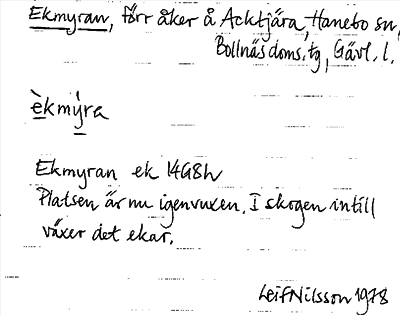 Ekmyran, förr åker å Acktjära, Hanebo sn,
Bollnäs doms.tg, Gävl. l.
èkmy̍ra
Ekmyran ek 14G8h
Platsen är nu igenvuxen. I skogen intill
växer det ekar.
Leif Nilsson 1978